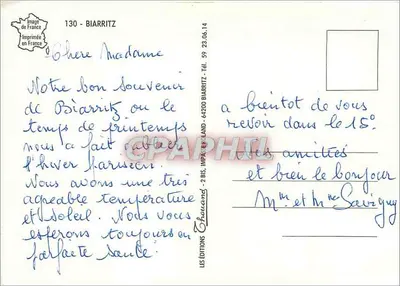 Image
de France
Imprimée
en France
130 - BIARRITZ
Chère Madame
Notre bon souvenir
de Biarritz ou le
temps de printemps
nous a fait oublier
l'hiver parisien.
Nous avons une très
agréable température
et soleil. Nous vous
espérons toujours en
parfaite santé.
LES ÉDITIONS Thouand - 2 BIS, IMP. LAND - 64200 BIARRITZ - Tél. 59 23.06.14
a bientôt de vous
revoir dans le 15º
mes amitiés
et bien le bonjour
Mr et Mme Savigny